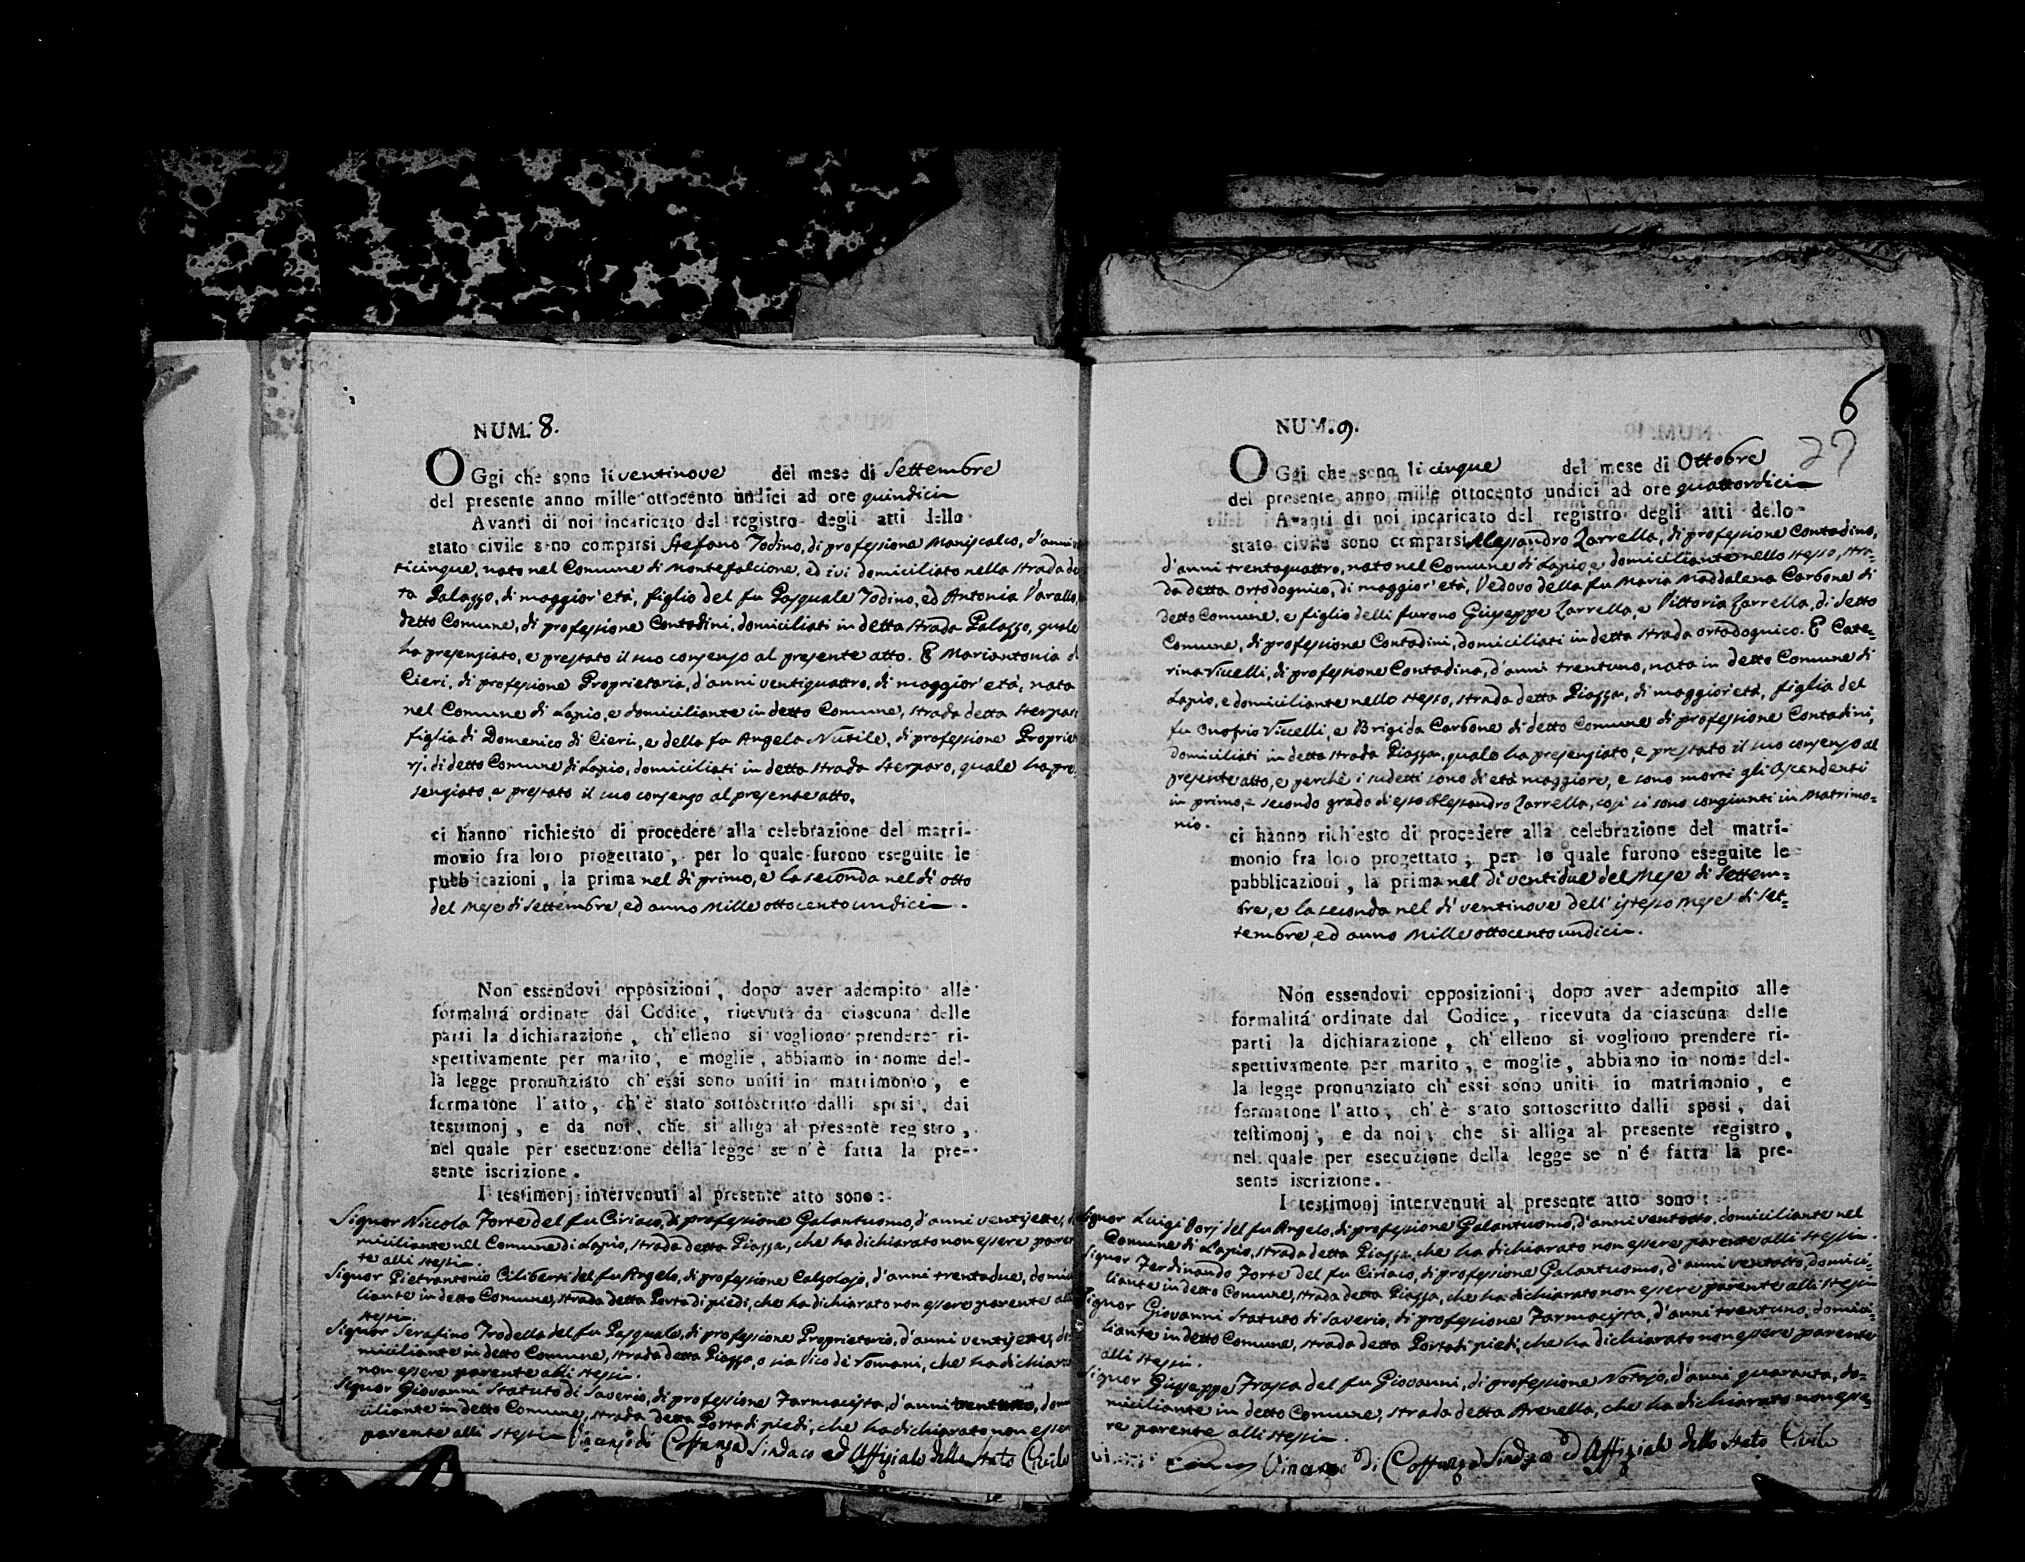 NUM. 8.
OGgi che sono li ventinove del mese di Settembre
del presente anno mille ottocento undici ad ore quindici
Avanti di noi incaricato del registro degli atti dello
stato civile sono comparsi Stefano Iodino, di professione Maniscalco, d'anni
ticinque, nato nel Comune di Montefalcione, ed ivi domiciliato nella strada
ta Palazzo, di maggior età, figlio del fu Pasquale Iodino, ed Antonia Varallo
detto Comune, di professione Contadini, domiciliati in detta strada Palazzo, quale
ha presenziato, e prestato il suo consenso al presente atto. E Mariantonia
Cieri, di professione Proprietaria, d'anni ventiquattro, di maggior età, nata
nel Comune di Lapio, e domiciliante in detto Comune, strada detta
figlia di Domenico di Cieri, e della fu Angela Nutile, di professione Proprie
rj. di detto Comune di Lapio, domiciliati in detta strada Sterparo, quale ha pre
senziato, e prestato il suo consenso al presente atto.
ci hanno richiesto di procedere alla celebrazione del matri-
monio fra loro progettato, per lo quale furono eseguite le
pubblicazioni, la prima nel dì primo, e la seconda nel dì otto
del Mese di Settembre, ed anno Mille ottocento undici.
Non essendovi opposizioni, dopo aver adempito alle
formalitá ordinate dal Codice, ricevuta da ciascuna delle
parti la dichiarazione, ch'elleno si vogliono prendere ri-
spettivamente per marito, e moglie, abbiamo in nome del-
la legge pronunziato ch'essi sono uniti in matrimonio, e
formatone l'atto, ch'è stato sottoscritto dalli sposi, dai
testimonj, e da noi, che si alliga al presente registro,
nel quale per esecuzione della legge se n'è fatta la pre-
sente iscrizione.
I testimonj intervenuti al presente atto sono:
Signor Niccola Forte del fu Ciriaco, di professione Galantuomo, d'anni ventisette,
miciliante nel Comune di Lapio, strada detta Piazza, che ha dichiarato non essere paren
te alli stessi.
Signor Pietrantonio Ciliberti del fu Angelo, di professione Calzolajo, d'anni trentadue, domi
liante in detto Comune, strada detta Porta di piedi, che ha dichiarato non essere parente
stessi.
Signor Serafino Trodella del fu Pasquale, di professione Proprietario, d'anni ventisette,
miciliante in detto Comune, strada detta Piazza, o sia Vico de Romani, che ha dichiara
non essere parente alli stessi.
Signor Giovanni Statuto di Saverio, di professione Farmacista, d'anni trentuno,
ciliante in detto Comune, strada detta Porta di piedi, che ha dichiarato non esser
parente alli stessi Vincenzo di Costanza Sindaco ed Uffiziale dello Stato Civile
6
27
NUM. 9.
OGgi che sono li cinque del mese di Ottobre
del presente anno mille ottocento undici ad ore quattordici
Avanti di noi incaricato del registro degli atti dello
stato civile sono comparsi Alessandro Zarrella, di professione Contadino,
d'anni trentaquattro, nato nel Comune di Lapio, e domiciliante nello stesso, stra-
da detta Ortodognico, di maggior età, Vedovo della fu Maria Maddalena Carbone di
detto Comune, e figlio delli furono Giuseppe Zarrella, e Vittoria Zarrella, di detto
Comune, di professione Contadini, domiciliati in detta strada Ortodognico. E Cate-
rina Vicelli, di professione Contadina, d'anni trentuno, nata in detto Comune di
Lapio, e domiciliante nello stesso, strada detta Piazza, di maggior età, figlia del
fu Onofrio Viccelli, e Brigida Carbone di detto Comune di professione Contadini,
domiciliati in detta strada Piazza, quale ha presenziato, e prestato il suo consenso al
presente atto, e perchè i sudetti sono di età maggiore, e sono morti gli Ascendenti
in primo, e secondo grado di esso Alessandro Zarrella, così si sono congiunti in Matrimo-
nio.
ci hanno richiesto di procedere alla celebrazione del matri-
monio fra loro progettato, per lo quale furono eseguite le
pubblicazioni, la prima nel dì ventidue del Mese di Settem-
bre, e la seconda nel dì ventinove dell'istesso Mese di Set-
tembre, ed anno Mille ottocento undici.
Non essendovi opposizioni, dopo aver adempito alle
formalitá ordinate dal Codice, ricevuta da ciascuna delle
parti la dichiarazione, ch'elleno si vogliono prendere ri-
spettivamente per marito, e moglie, abbiamo in nome del-
la legge pronunziato ch'essi sono uniti in matrimonio, e
formatone l'atto, ch'è stato sottoscritto dalli sposi, dai
testimonj, e da noi, che si alliga al presente registro,
nel quale per esecuzione della legge se n'é fatta la pre-
sente iscrizione.
I testimonj intervenuti al presente atto sono:
Signor Luigi Dorsi del fu Angelo, di professione Galantuomo, d'anni ventotto, domiciliante nel
Comune di Lapio, strada detta Piazza, che ha dichiarato non essere parente alli stessi.
Signor Ferdinando Forte del fu Ciriaco, di professione Galantuomo, d'anni ventotto, domici-
liante in detto Comune, strada detta Piazza, che ha dichiarato non essere parente alli stessi
Signor Giovanni Statuto di Saverio, di professione Farmacista, d'anni trentuno, domici-
liante in detto Comune, strada detta Porta di piedi, che ha dichiarato non essere parente
alli stessi.
Signor Giuseppe Frasca del fu Giovanni, di professione Notajo, d'anni quaranta, do-
miciliante in detto Comune, strada detta Arenella, che ha dichiarato non esse-
re parente alli stessi.
Vincenzo di Costanza Sindaco ed Uffiziale dello Stato Civile